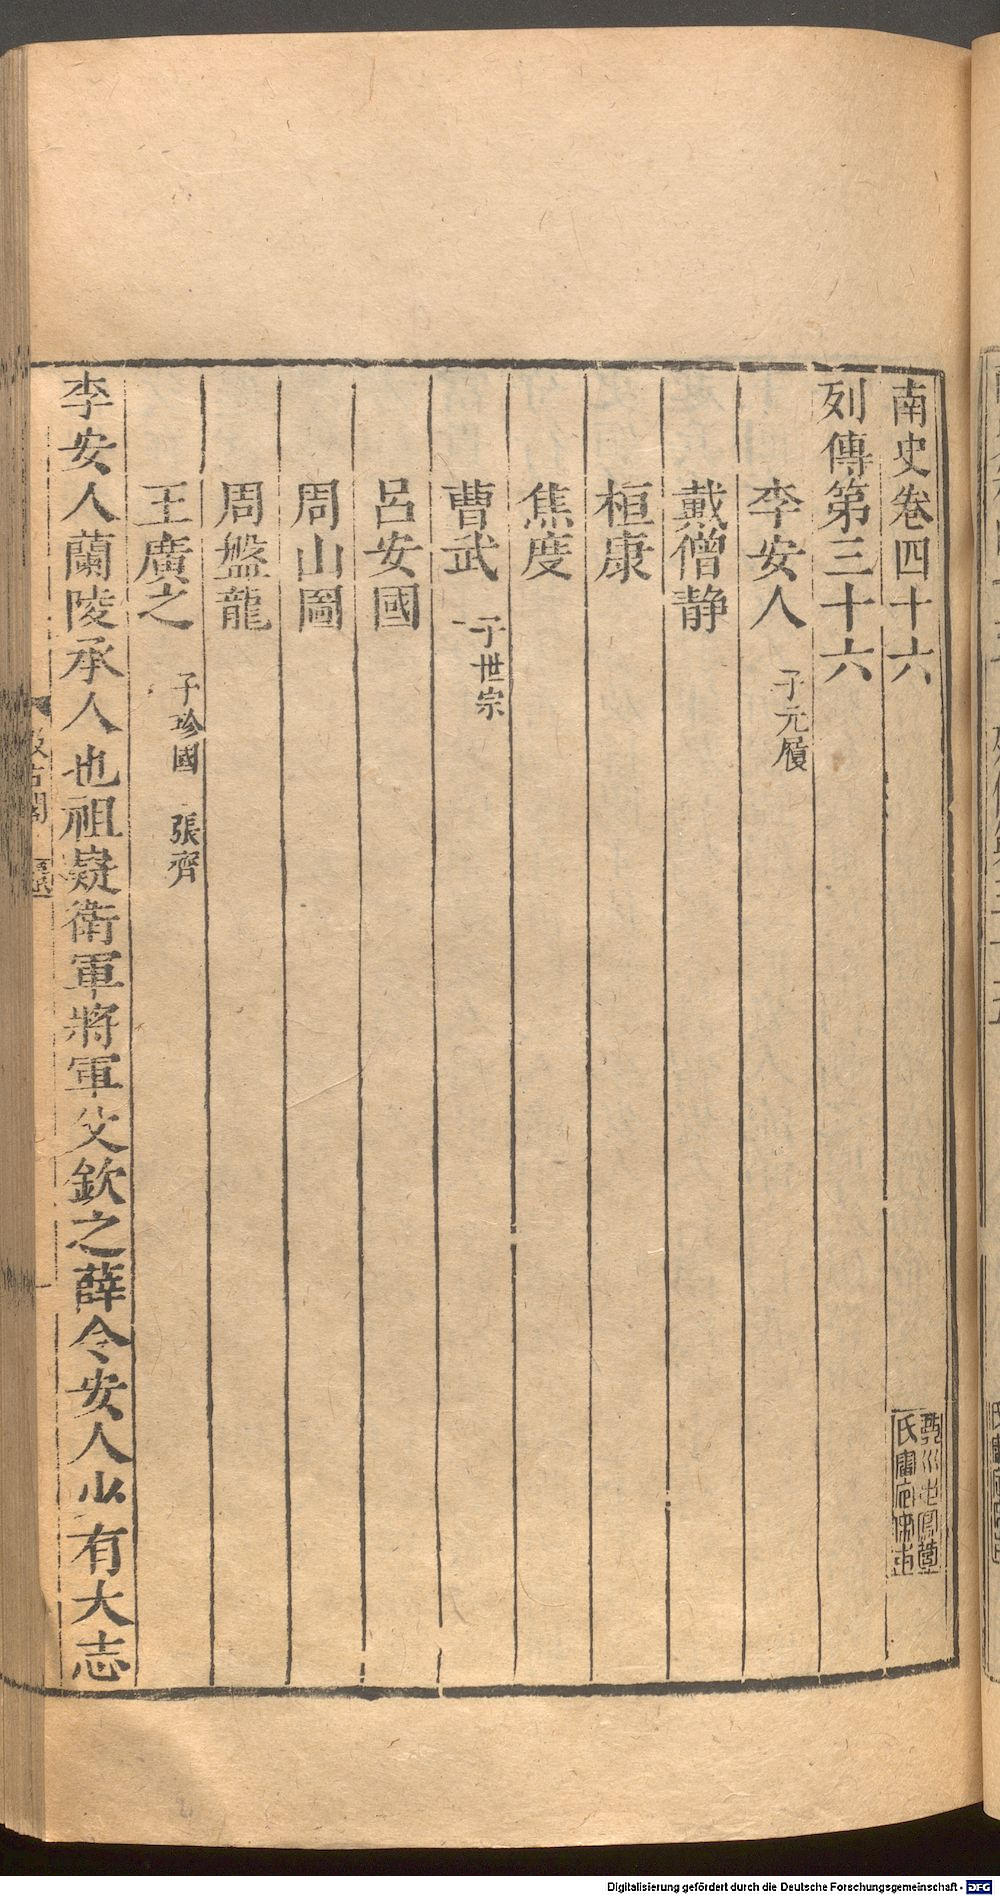 南史卷四十六
列傳第三十六
李安人 子元履
戴僧静
桓康
焦度
曹武 子世宗
呂安國
周山圖
周盤龍
王廣之 子珍國 張齊
李安人蘭陵承人也祖嶷衛軍將軍父欽之薛令安人少有大志
Digitalisierung gefördert durch die Deutsche Forschungsgemeinschaft - DFG